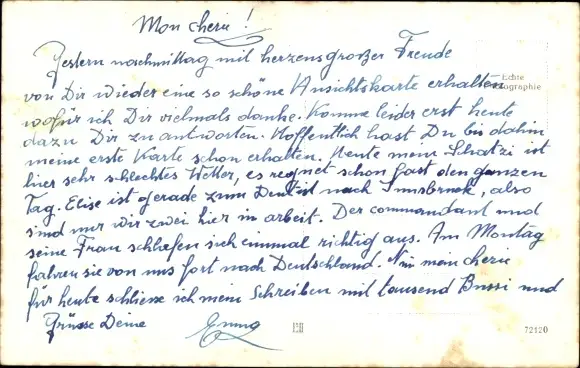 Mon cherie!
Gestern nachmittag mit herzensgroßer Freude
von Dir wieder eine so schöne Ansichtskarte erhalten
wofür ich Dir vielmals danke. Komme leider erst heute
dazu Dir zu antworten. Hoffentlich hast Du bis dahin
meine erste Karte schon erhalten. Heute mein Schatzi ist
hier sehr schlechtes Wetter, es regnet schon fast den ganzen
Tag. Elise ist gerade zum Dentist nach Innsbruck, also
sind nur wir zwei hier in arbeit. Der commandant und
seine Frau schliefen sich einmal richtig aus. Am Montag
fahren sie von uns fort nach Deutschland. Nun mein cherie
für heute schliesse ich mein Schreiben mit tausend Bussi und
Grüsse Deine
Echte
ographie
72120